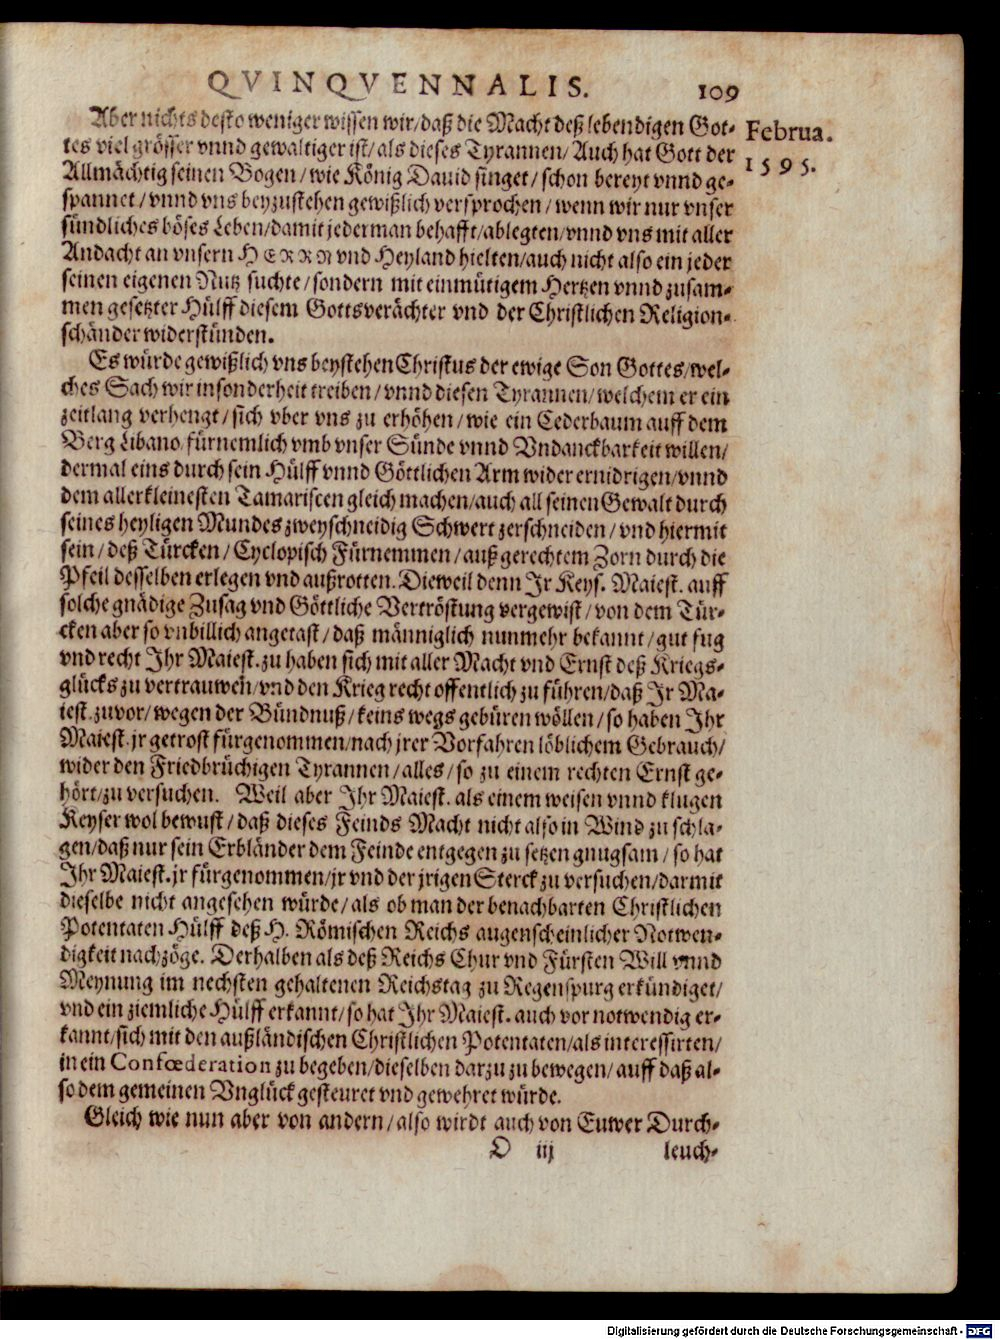 QVINQVENNALIS. 109
Februa.
1595.
Aber nichts desto weniger wissen wir/daß die Macht deß lebendigen Got-
tes viel grösser vnnd gewaltiger ist/als dieses Tyrannen/Auch hat Gott der
Allmächtig seinen Bogen/wie König Dauid singet/schon bereyt vnnd ge-
spannet/vnnd vns beyzustehen gewißlich versprochen/wenn wir nur vnser
sündliches böses Leben/damit jederman behafft/ablegten/vnnd vns mit aller
Andacht an vnsern HERRN vnd Heyland hielten/auch nicht also ein jeder
seinen eigenen Nutz suchte/sondern mit einmütigem Hertzen vnnd zusam-
men gesetzter Hülff diesem Gottsverächter vnd der Christlichen Religion-
schänder widerstünden.
Es würde gewißlich vns beystehen Christus der ewige Son Gottes/wel-
ches Sach wir insonderheit treiben/vnnd diesen Tyrannen/welchem er ein
zeitlang verhengt/sich vber vns zu erhöhen/wie ein Cederbaum auff dem
Berg Libano/fürnemlich vmb vnser Sünde vnnd Vndanckbarkeit willen/
dermal eins durch sein Hülff vnnd Göttlichen Arm wider ernidrigen/vnnd
dem allerkleinesten Tamariscen gleich machen/auch all seinen Gewalt durch
seines heyligen Mundes zweyschneidig Schwert zerschneiden/vnd hiermit
sein/deß Türcken/Cyclopisch Fürnemmen/auß gerechtem Zorn durch die
Pfeil desselben erlegen vnd außrotten. Dieweil denn Jr Keys. Maiest. auff
solche gnädige Zusag vnd Göttliche Vertröstung vergewist/von dem Tür-
cken aber so vnbillich angetast/daß männiglich nunmehr bekannt/gut fug
vnd recht Ihr Maiest. zu haben sich mit aller Macht vnd Ernst deß Kriegs-
glücks zu vertrauwen/vnd den Krieg recht offentlich zu führen/daß Jr Ma-
iest. zuvor/wegen der Bündnuß/keins wegs gebüren wöllen/so haben Ihr
Maiest. jr getrost fürgenommen/nach jrer Vorfahren löblichem Gebrauch/
wider den Friedbrüchigen Tyrannen/alles/so zu einem rechten Ernst ge-
hört/zu versuchen. Weil aber Ihr Maiest. als einem weisen vnnd klugen
Keyser wol bewust/daß dieses Feinds Macht nicht also in Wind zu schla-
gen/daß nur sein Erbländer dem Feinde entgegen zu setzen gnugsam/so hat
Ihr Maiest. jr fürgenommen/jr vnd der jrigen Sterck zu versuchen/darmit
dieselbe nicht angesehen würde/als ob man der benachbarten Christlichen
Potentaten Hülff deß H. Römischen Reichs augenscheinlicher Notwen-
digkeit nachzöge. Derhalben als deß Reichs Chur vnd Fürsten Will vnnd
Meynung im nechsten gehaltenen Reichstag zu Regenspurg erkündiget/
vnd ein ziemliche Hülff erkannt/so hat Ihr Maiest. auch vor notwendig er-
kannt/sich mit den außländischen Christlichen Potentaten/als interessirten/
in ein Confœderation zu begeben/dieselben darzu zu bewegen/auff daß al-
so dem gemeinen Vnglück gesteuret vnd gewehret würde.
Gleich wie nun aber von andern/also wirdt auch von Euwer Durch-
O iij leuch-
Digitalisierung gefördert durch die Deutsche Forschungsgemeinschaft - DFG